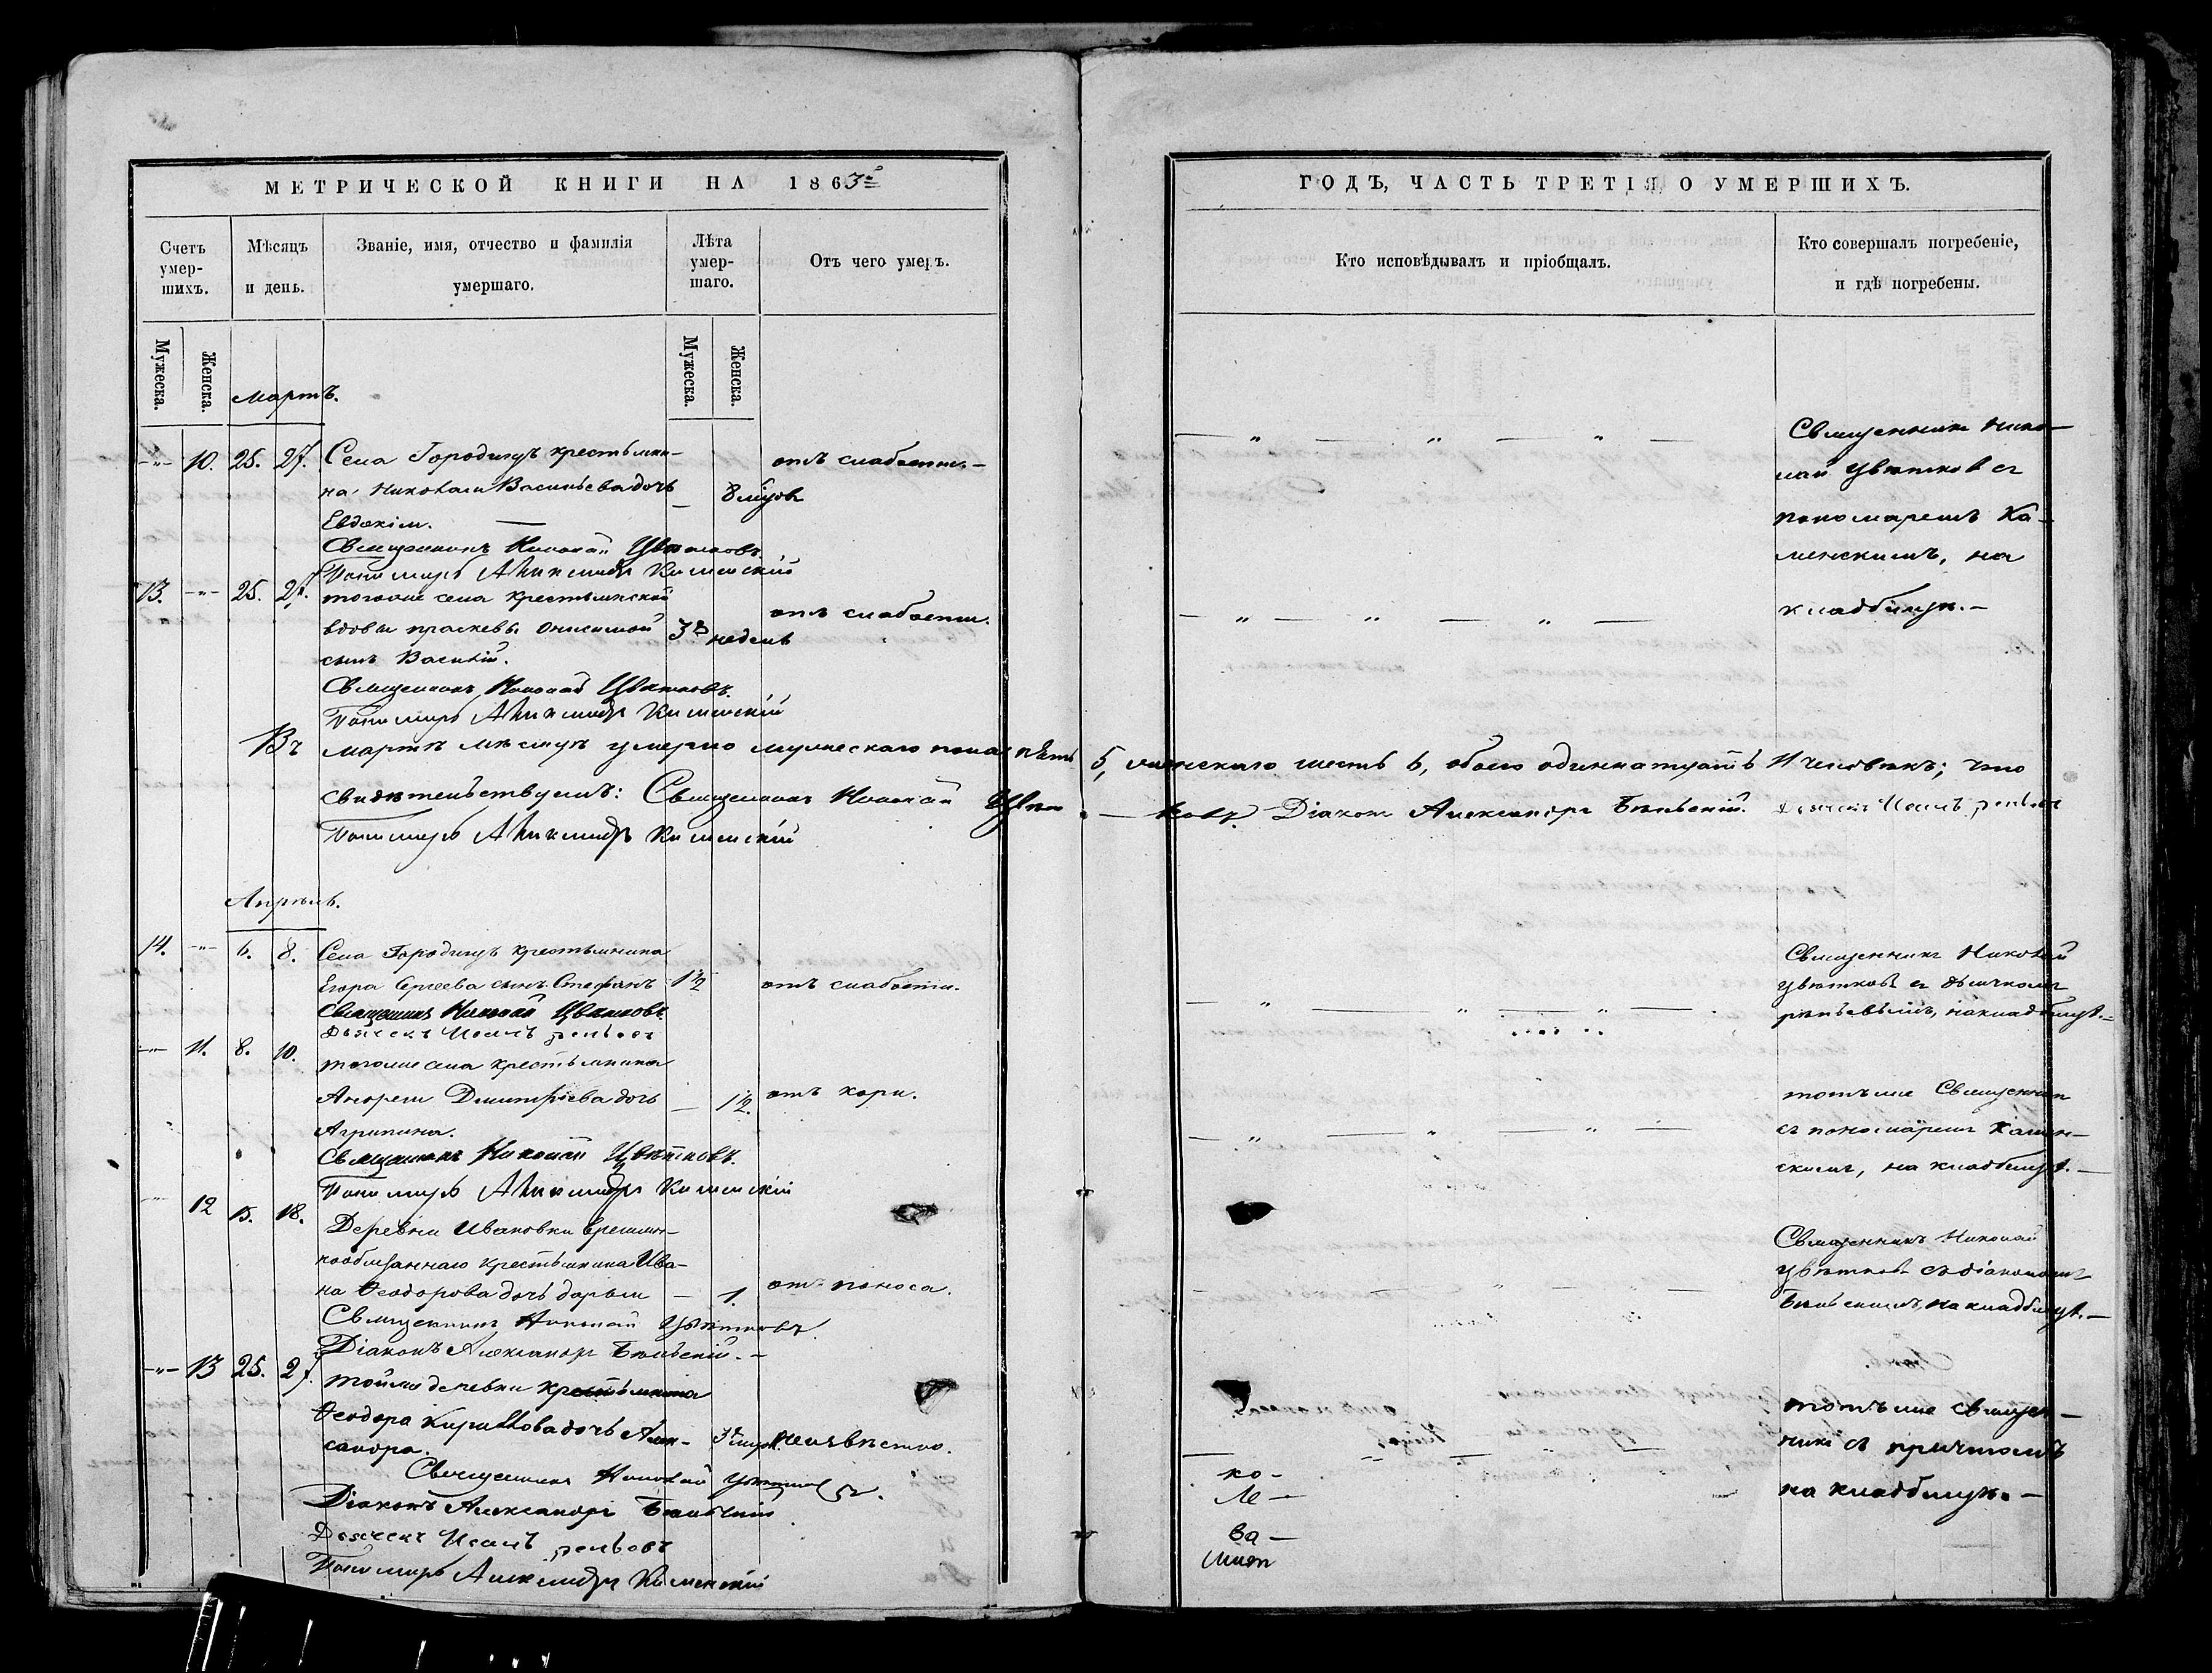 МЕТРИЧЕСКОЙ КНИГИ НА 1863й
Счетъ умер-шихъ.
Мѣсяцъ и день.
Званіе, имя, отчество и фамилія умершаго.
Лѣта умер-шаго.
Отъ чего умеръ.
Мужеска.
Женска.
Мужеска.
Женска.
Мартъ.
-„- 10. 25. 27. Села Городищъ крестьяни-
на Николая Васильева дочь — 8 мѣсяцовъ отъ слабости.-
Евдокія. —
Священникъ Николай Цвѣтковъ.
Пономарь Александръ Каменскій
13. -„- 25. 27. тогоже села крестьянской
вдовы Праскевы Онисимой 3хъ недель отъ слабости.
сынъ Василій.
Священникъ Николай Цвѣтковъ.
Пономарь Александръ Каменскій
Въ мартѣ мѣсяцѣ умерло мужескаго пола пять
свидѣтельствуемъ: Священникъ Николай Цвѣт
Пономарь Александръ Каменскій
Апрѣль.
14. -„- 6. 8. Села Городищъ крестьянина
Егора Сергеева сынъ Стефанъ 1½ отъ слабости.
Священникъ Николай Цвѣтковъ.
Дьячекъ
-„- 11. 8. 10. тогоже села крестьянина
Андрея Димитріева дочь — 1½. отъ кори.
Агрипина.
Священникъ Николай Цвѣтковъ.
Пономарь Александръ Каменскій
12 15. 18. Деревни Ивановки времян-
нообязаннаго крестьянина Ива-
на Ѳеодорова дочь Дарья — 1. отъ поноса.
Священникъ Николай Цвѣтковъ.
Діаконъ Александръ Бѣльскій. -
-„- 13 25. 27. тойже деревни крестьянина
Ѳеодора Кириллова дочь Алек-
сандра. 3х неизвѣстно.
Священникъ Николай Цвѣтковъ.
Діаконъ Александръ Бѣльскій
Дьячекъ
Пономарь Александръ Каменскій
ГОДЪ, ЧАСТЬ ТРЕТІЯ О УМЕРШИХЪ.
Кто исповѣдывалъ и пріобщалъ.
Кто совершалъ погребеніе,
и гдѣ погребены.
Священникъ Нико-
лай Цвѣтковъ съ
пономаремъ Ка-
менскимъ, на
кладбищѣ.-
5, женскаго шесть 6, обоего одиннатцать 11 человѣкъ; что
— ковъ. Діаконъ Александръ Бѣльскій. Дьячекъ
Священникъ Николай
Цвѣтковъ съ дьячкомъ
на кладбищѣ.-
тотъже Священникъ
съ пономаремъ Камен-
скимъ, на кладбищѣ.-
Священникъ Николай
Цвѣтковъ съ діакономъ
Бѣльскимъ на кладбищѣ.-
тотъже священ-
никъ съ причтомъ
на кладбищѣ.-
ко-
ле-
ва-